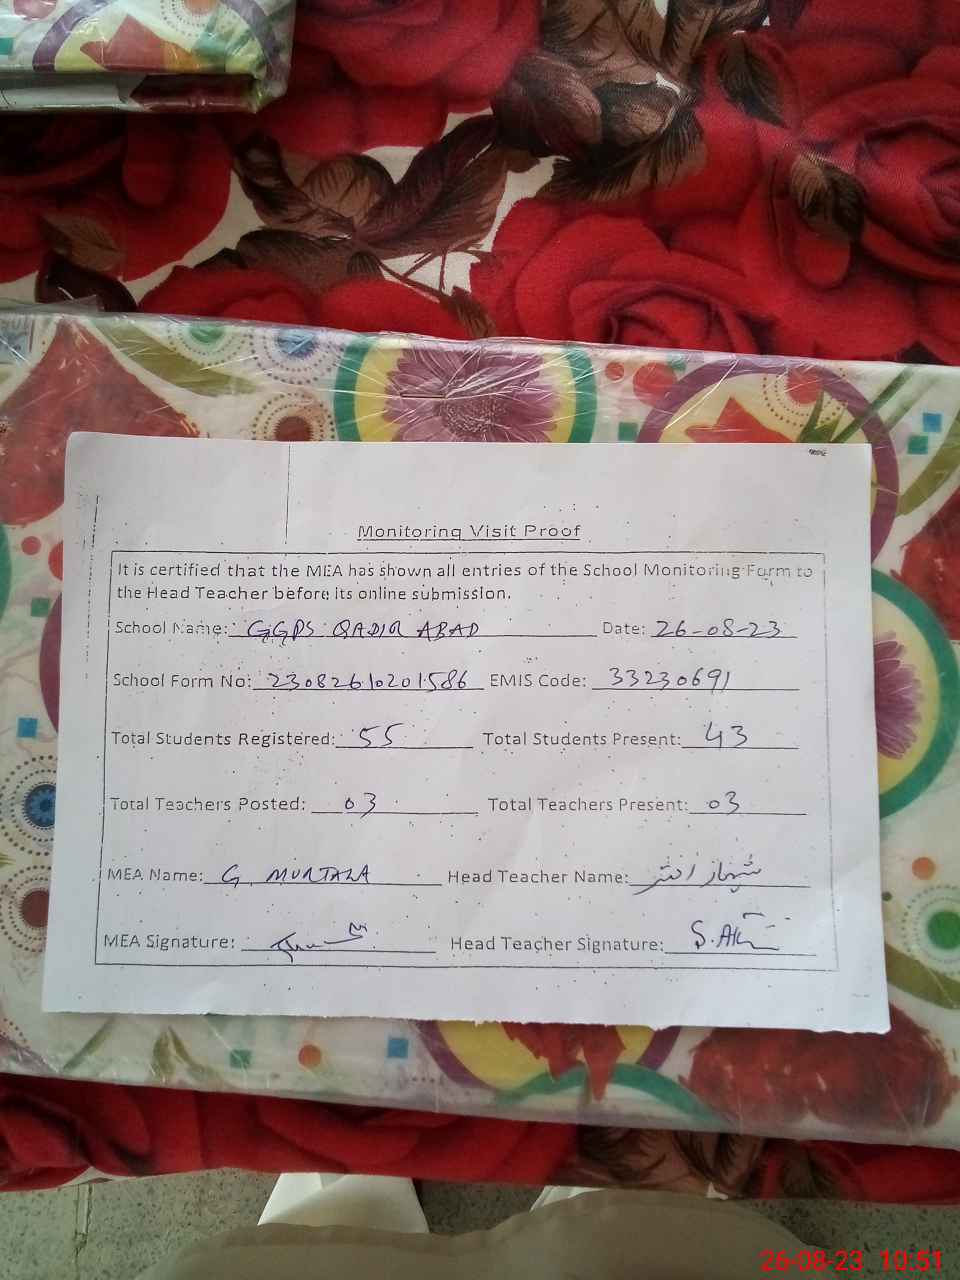 Monitoring Visit Proof
It is certified that the MEA has shown all entries of the School Monitoring Form to
the Head Teacher before its online submission.
School Name: GGPS QADIR ABAD Date: 26-08-23
School Form No: 23082610201586 EMIS Code: 33230691
Total Students Registered: 55 Total Students Present: 43
Total Teachers Posted: 03 Total Teachers Present: 03
MEA Name: G. MURTAZA Head Teacher Name: شہناز اختر
MEA Signature: Head Teacher Signature: S. AK
26-08-23 10:51